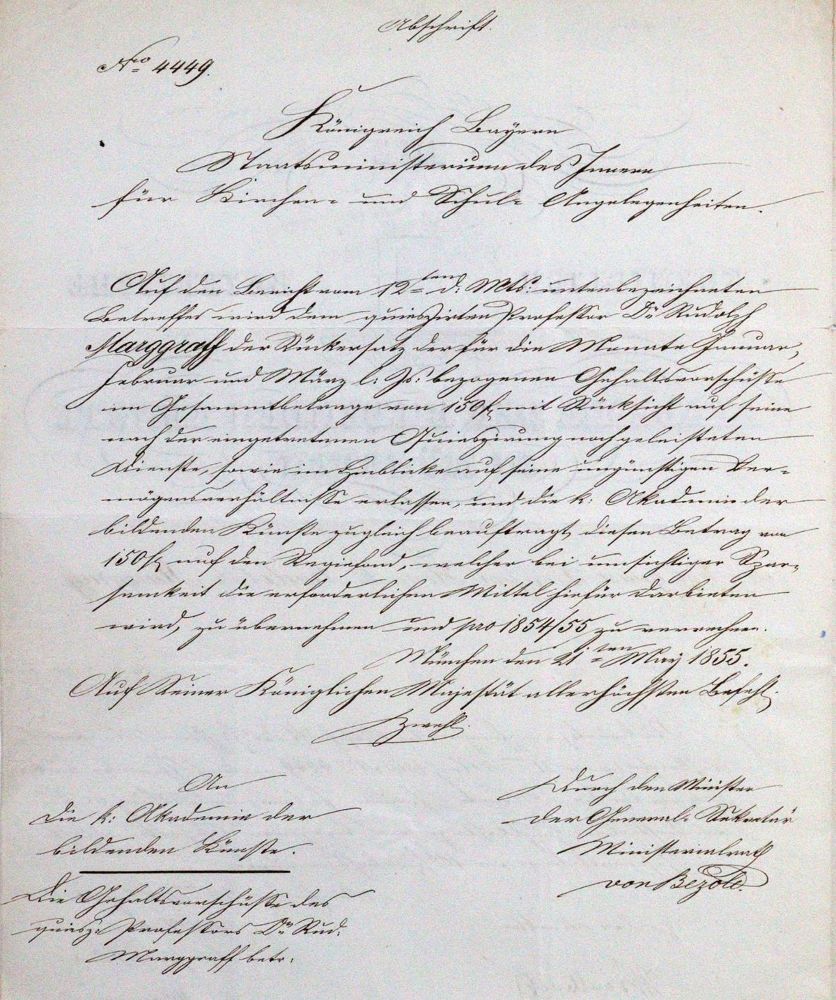 Abschrift.
Nro 4449.
Königreich Bayern
Staatsministerium des Innern
für Kirchen- und Schul- Angelegenheiten.
Auf den Bericht vom 12ten d: Mts: untenbezeichneten
Betreffes wird dem quieszirten Professor Dr Rudolph
Marggraff der Rückersatz der für die Monate Januar,
Februar und März l: Js: bezogenen Gehaltsvorschüsse
im Gesammtbetrage von 150 f mit Rücksicht auf seine
nach der eingetretenen Quieszirung noch geleisteten
Dienste, sowie im Hinblicke auf seine ungünstigen Ver-
mögensverhältnisse erlassen, und die k: Akademie der
bildenden Künste zugleich beauftragt, diesen Betrag von
150 f auf den Regiefond, welcher bei umsichtiger Spar-
samkeit die erforderlichen Mittel hiefür darbieten
wird, zu übernehmen und pro 1854/55 zu verrechnen.
München den 21ten May 1855.
Auf Seiner Königlichen Majestät allerhöchsten Befehl.
Zwehl.
An
die k: Akademie der
bildenden Künste.
Durch den Minister
der General- Sekretär
Ministerialrath
von Bezold.
Die Gehaltsvorschüsse des
quiesz: Professors Dr Rud:
Marggraff betr: